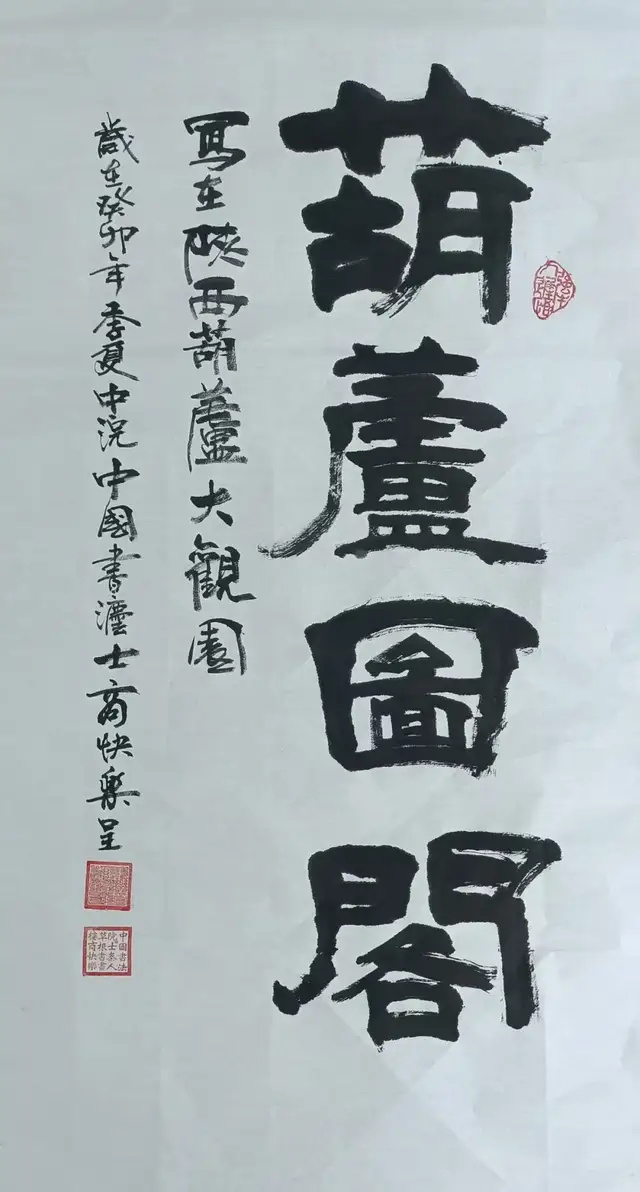 葫蘆圖閣
寫在陝西葫蘆大觀園
歲在癸卯年季夏中況中國書灋士商快樂呈
中國書法
院士
草根書
商快樂